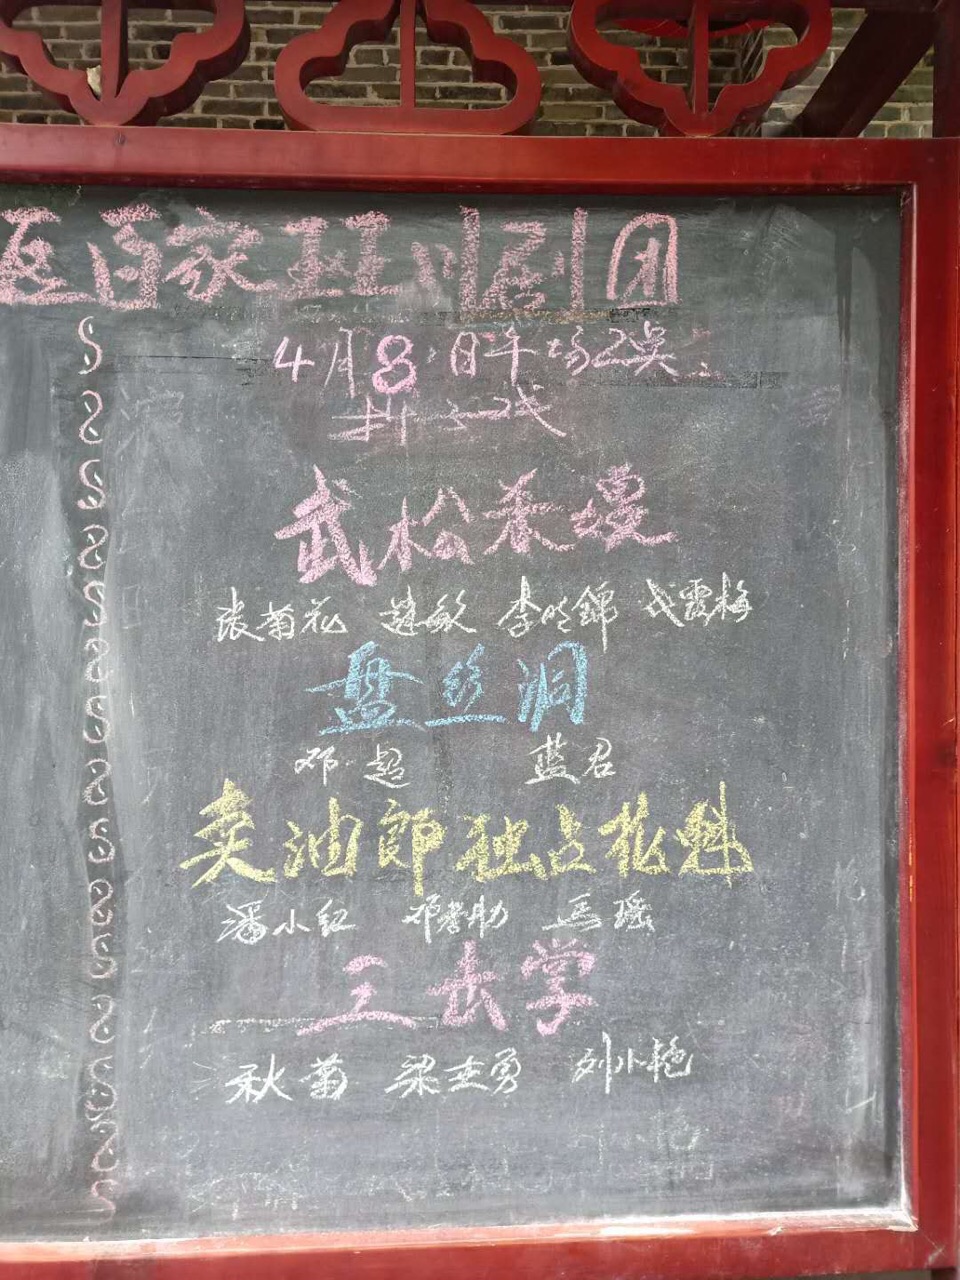 区百家班川剧团
4月8日午场
折子戏
武松杀嫂
张菊花 赵敏 李明锦 霞梅
盘丝洞
邓超 蓝君
卖油郎独占花魁
潘小红 邓学
三击掌
秋菊 梁 勇 刘小艳